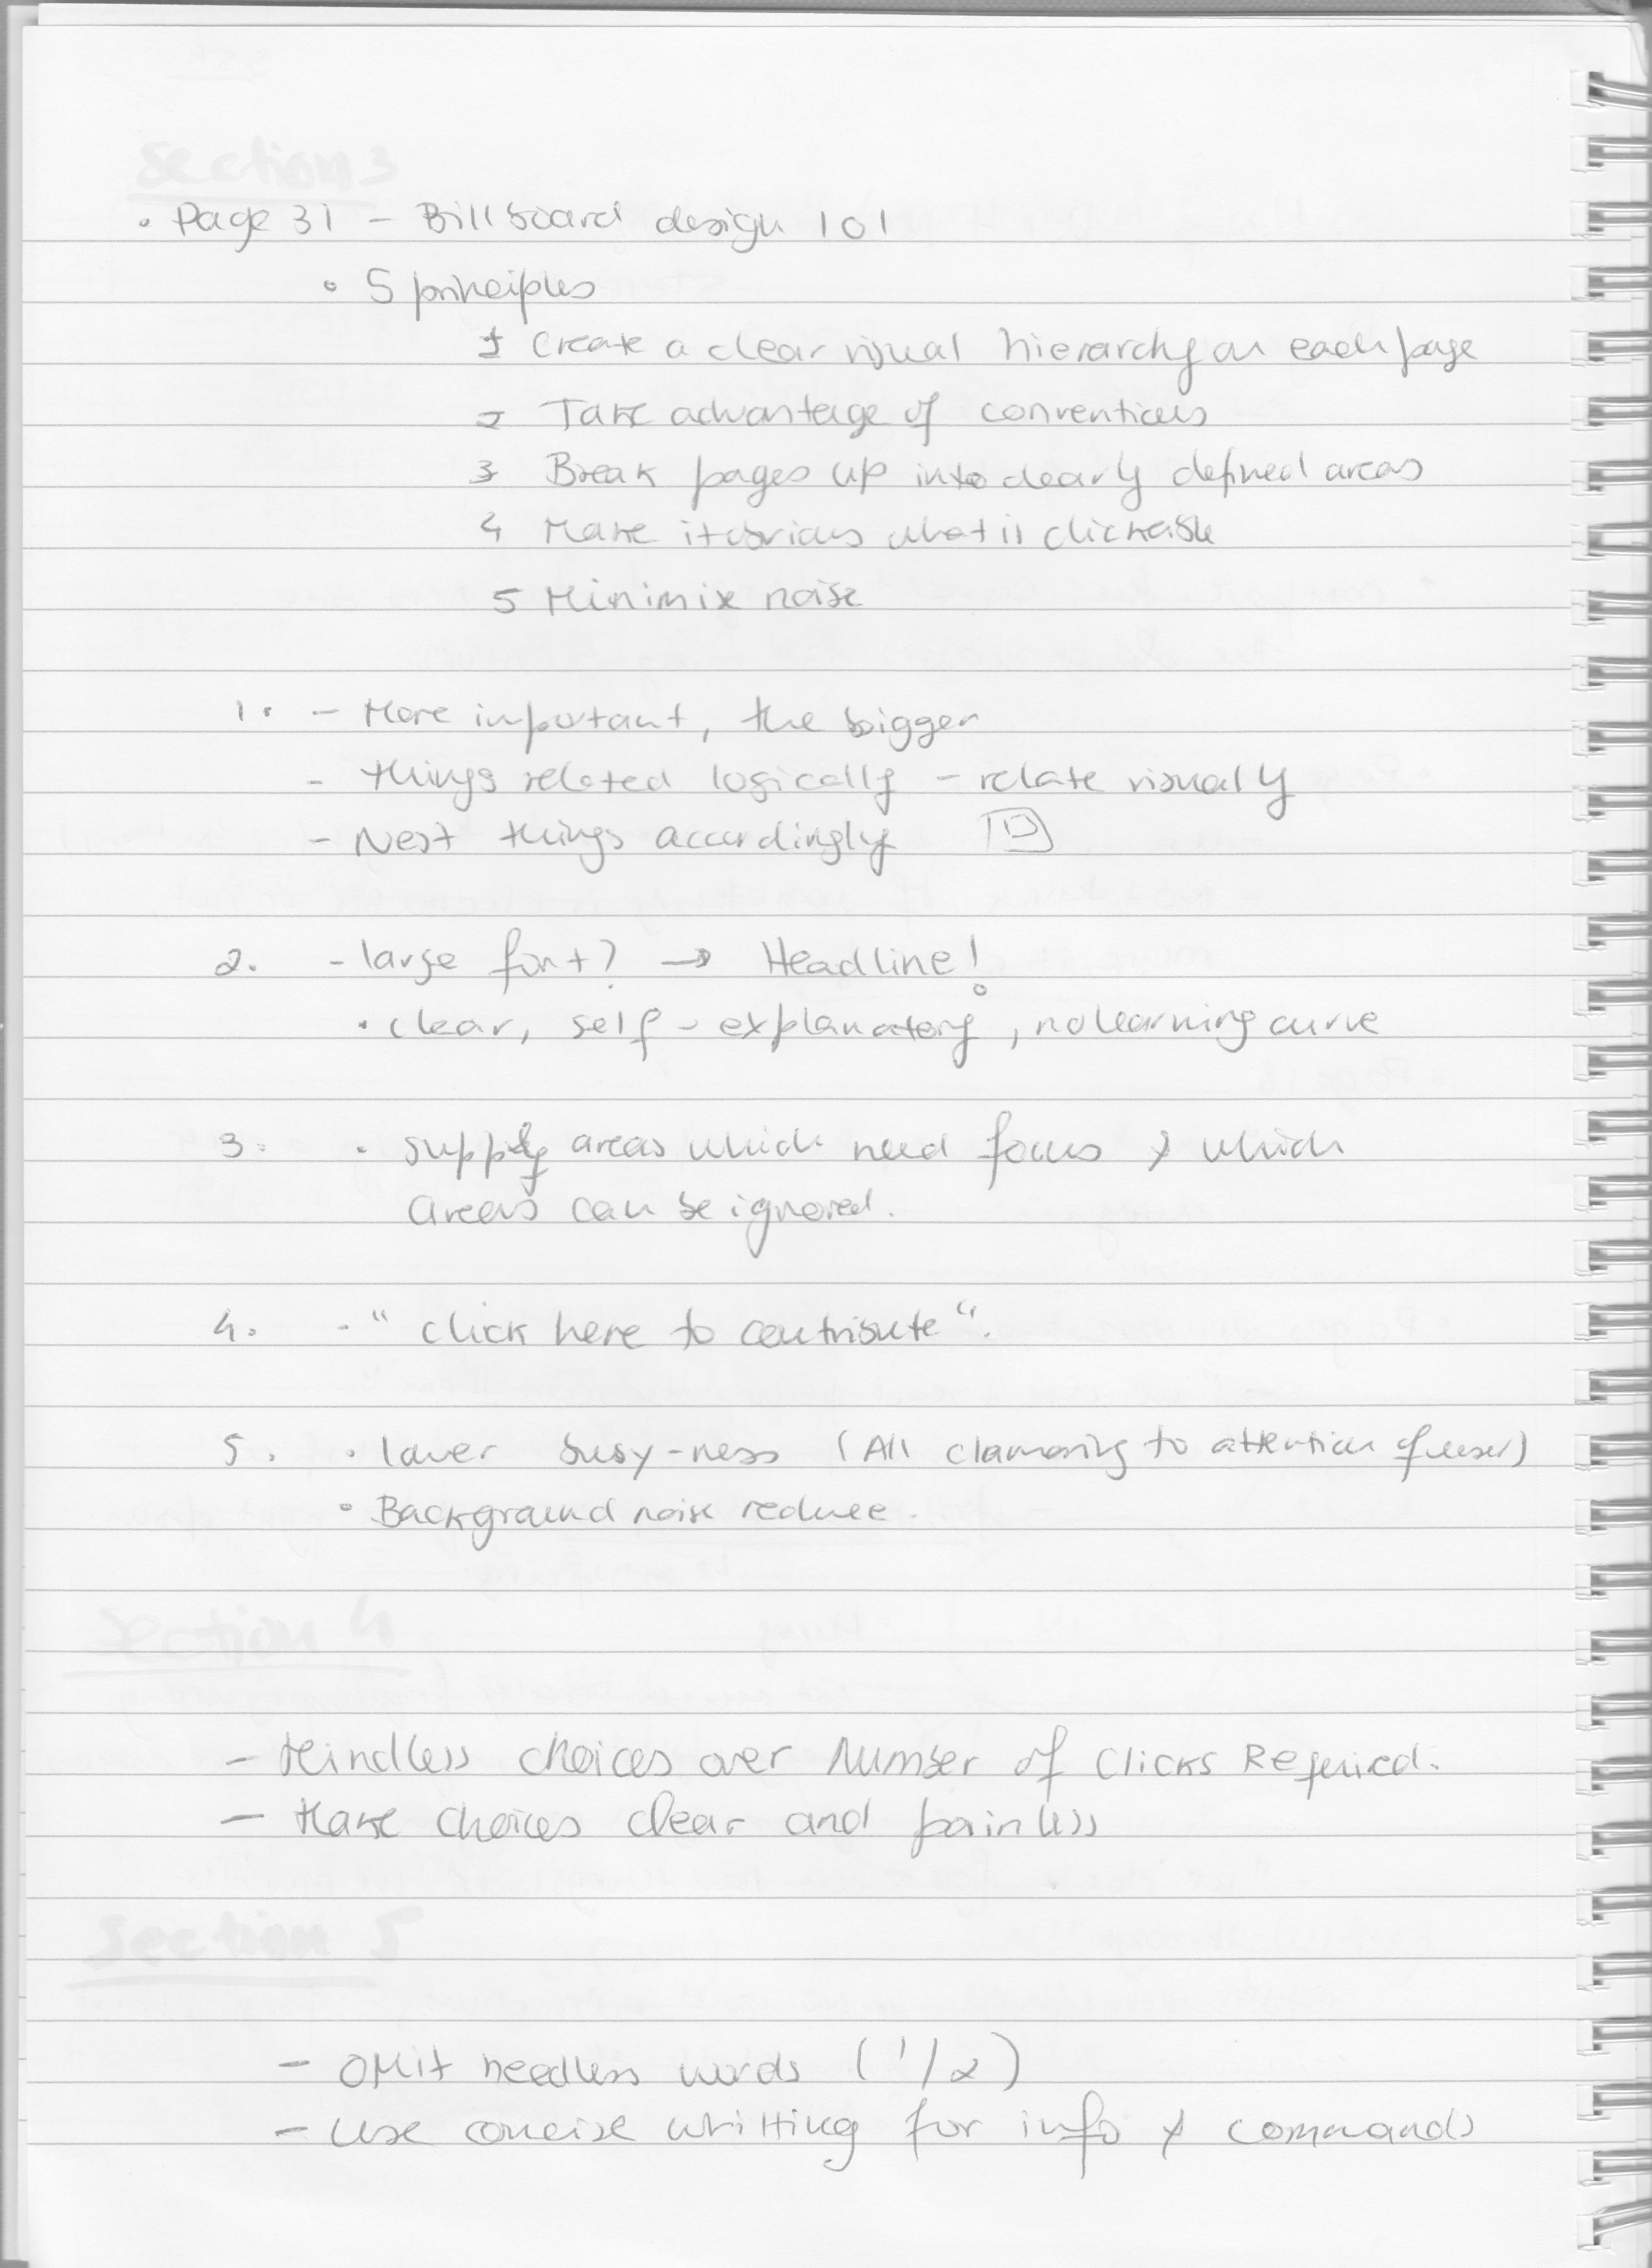 Section 3
• Page 31 – Billboard design 101
• 5 principles
1 Create a clear visual hierarchy on each page
2 Take advantage of conventions
3 Break pages up into clearly defined areas
4 Make it obvious what is clickable
5 Minimize noise
1. – More important, the bigger
- things related logically – relate visually
– Nest things accordingly
2. - large font? → Headline!
• clear, self-explanatory, no learning curve
3. • supply areas which need focus & which
areas can be ignored.
4. - "click here to contribute".
5. • lower busy-ness (All clamoring to attention of user)
• Background noise reduce.
Section 4
– Mindless choices over Number of Clicks Required.
– Make choices clear and painless
Section 5
– OMit needless words (1/2)
– Use concise writting for info & commands